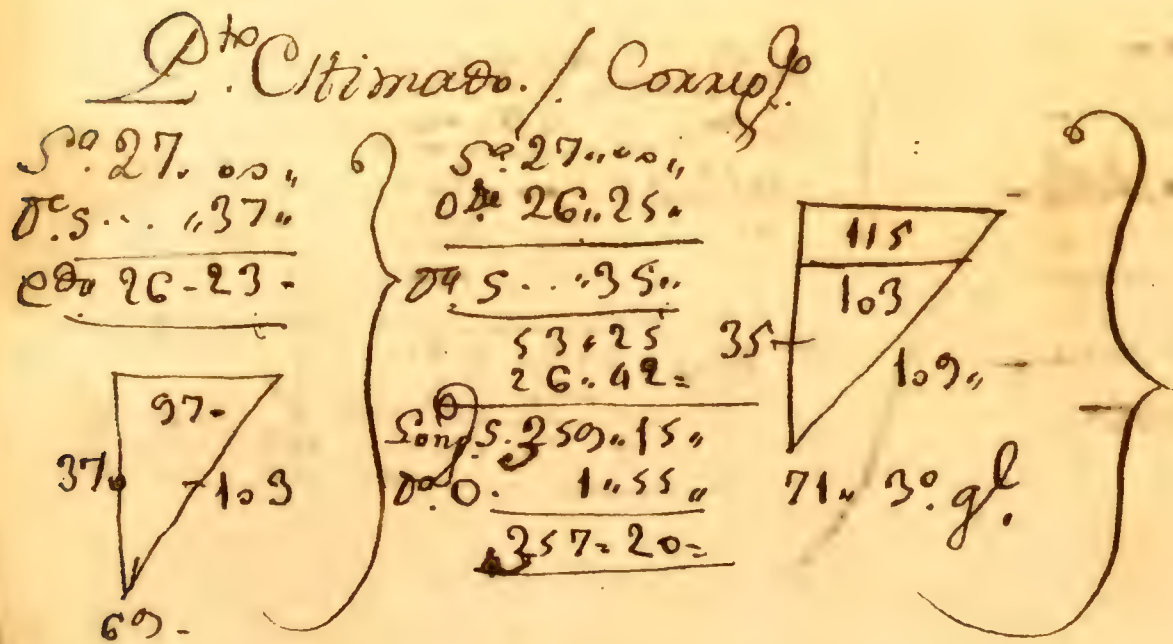 P.to Estimado. / Correg.do
S.a 27. 00,,
D.a S... ,,37,,
O.da 26-23-
97-
37.
103
69-
S.a 27,,00,,
O.da 26,,25,,
D.a S... ,,35,,
53,,25
26,,42=
Long. S. 359,,15,,
D.a O. 1,,55,,
357=20=
115
103
35
109,,
71,, 3.o gl.